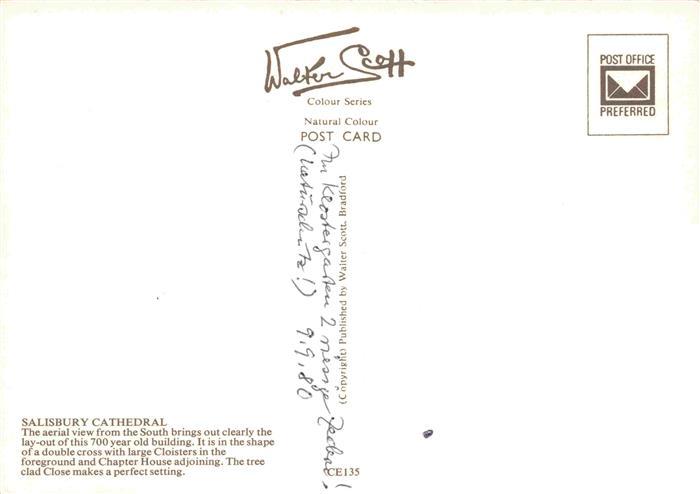 Walter Scott
Colour Series
Natural Colour
POST CARD
POST OFFICE
PREFERRED
Im Klostergarten 2 riesige Zedern!
(Naturschutz!) 9.9.80
(Copyright) Published by Walter Scott, Bradford
SALISBURY CATHEDRAL
The aerial view from the South brings out clearly the
lay-out of this 700 year old building. It is in the shape
of a double cross with large Cloisters in the
foreground and Chapter House adjoining. The tree
clad Close makes a perfect setting.
CE135